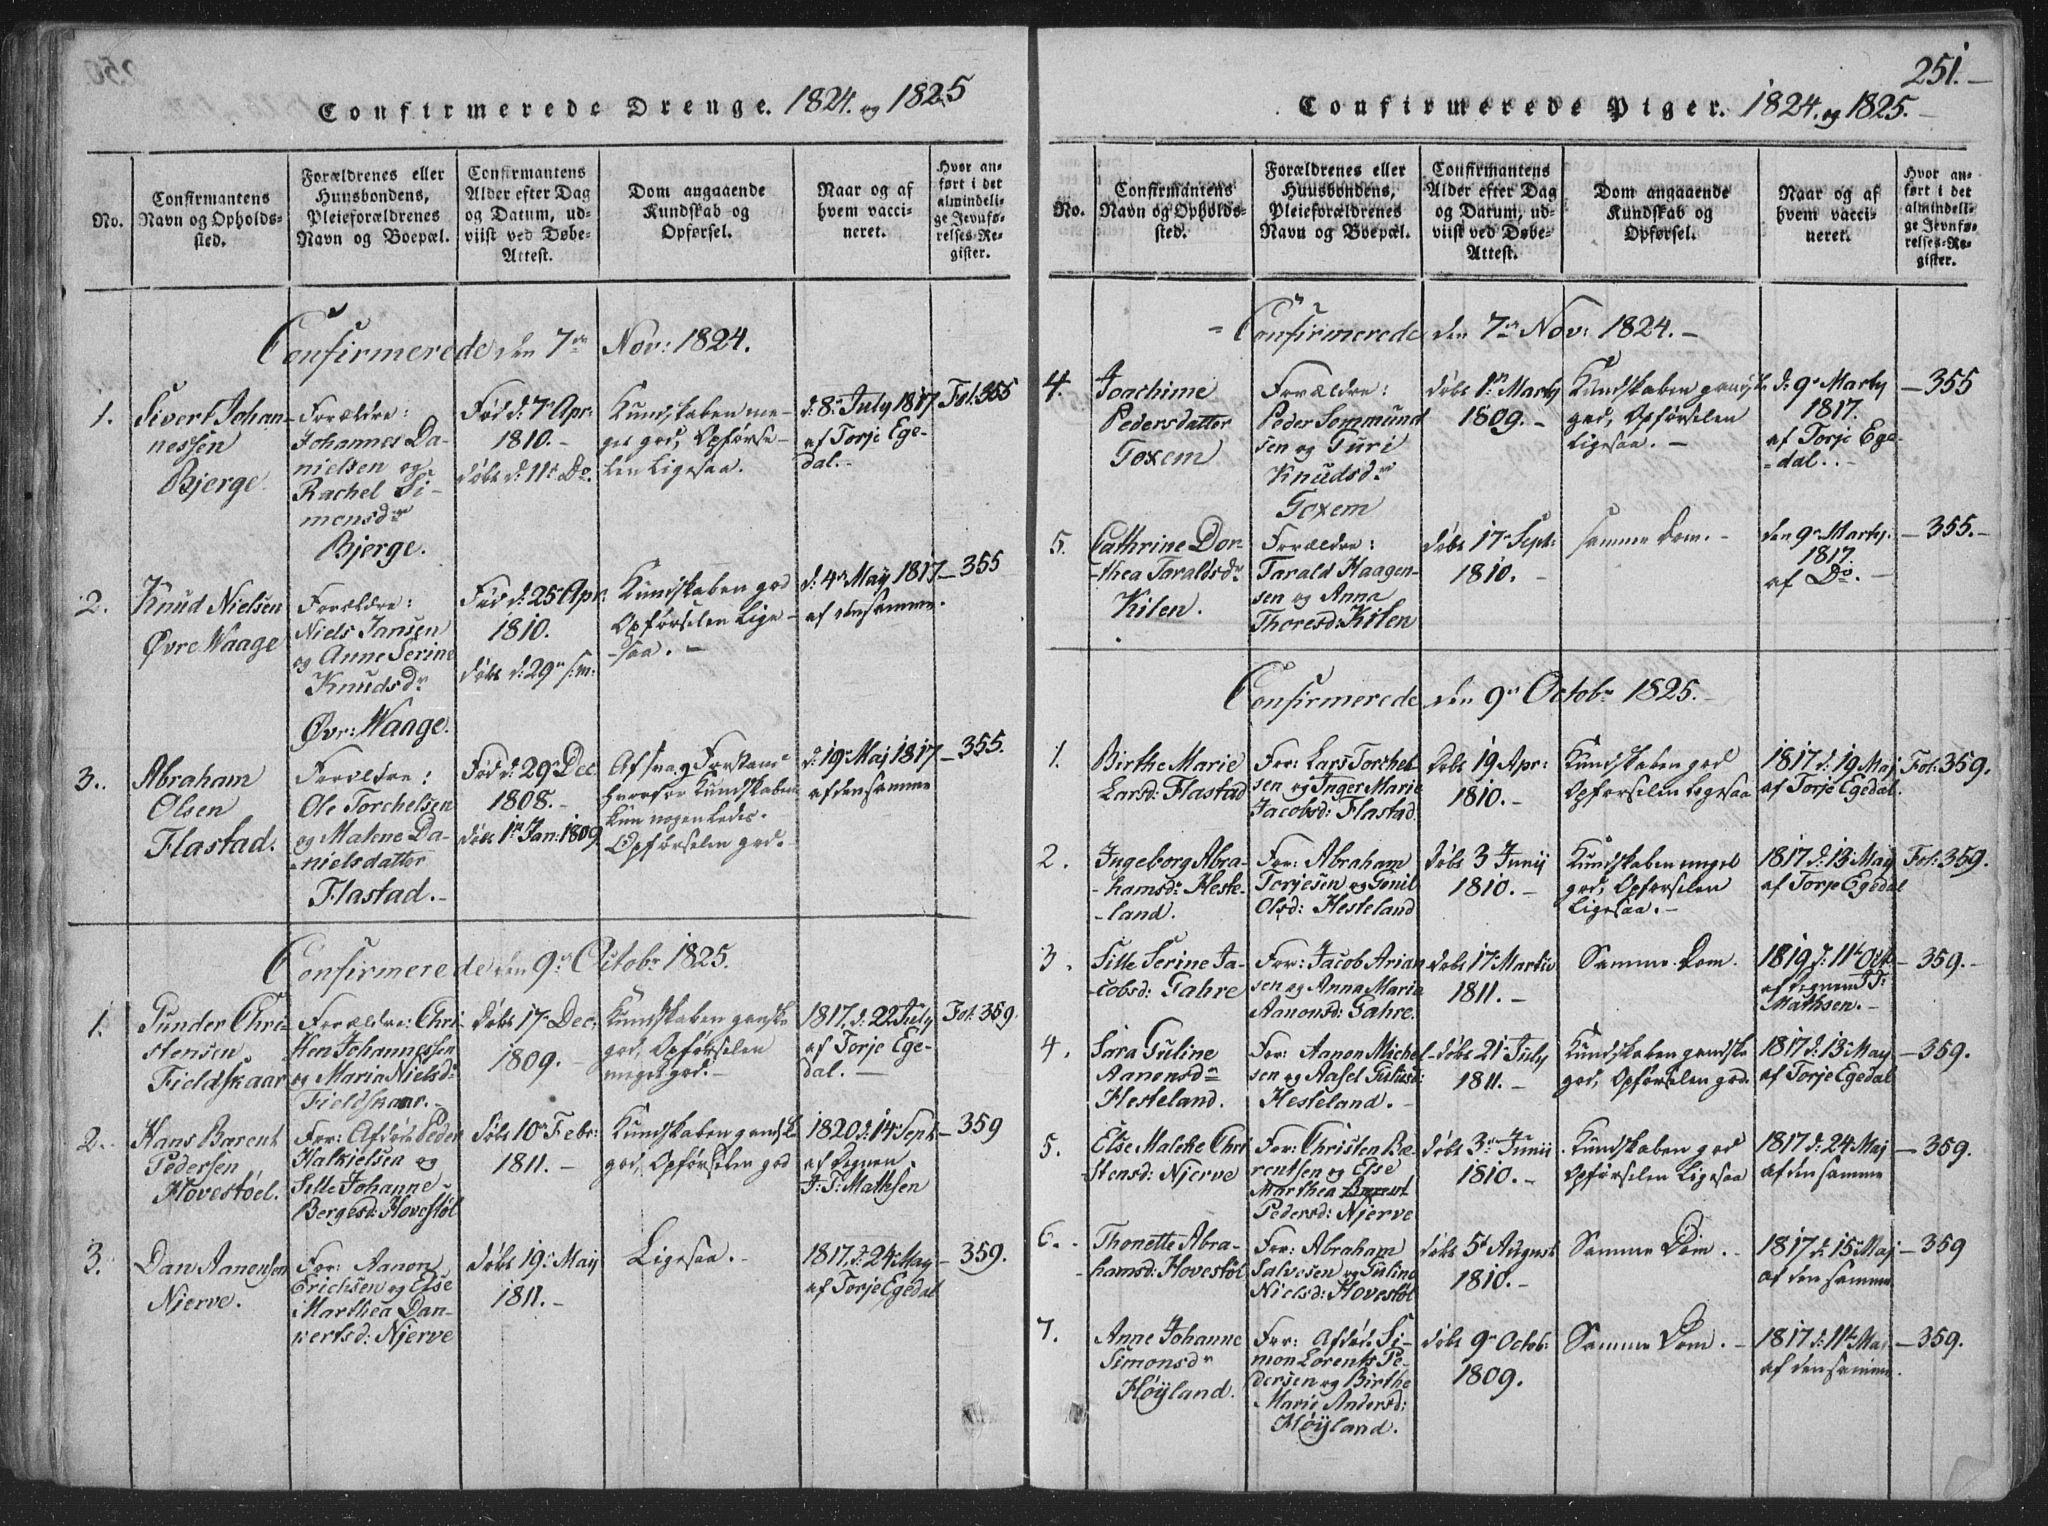 Confirmerede Drenge. 1824. og 1825
No.
Confirmantens
Navn og Opholds-
sted.
Forældrenes eller
Huusbondens,
Pleieforældrenes
Navn og Boepæl.
Confirmantens
Alder efter Dag
og Datum, ud-
viist ved Døbe-
Attest.
Dom angaaende
Kundskab og
Opførsel.
Naar og af
hvem vacci-
neret.
Hvor an-
ført i det
almindeli-
ge Jevnfø-
relses-Re-
gister.
Confirmerede den 7de Nov: 1824.
1.
Sivert Johan-
nessen
Bjerge.
Forældre:
Johannes Da-
nielsen og
Rachel Si-
mensdr
Bjerge.
Fød d: 7 Apr:
1810.-
døbt d: 11t Do.
Kundskaben me-
get god, Opførse-
len ligesaa.
d: 8 July 1817
af Torje Ege-
dal.-
Fol. 355
2.
Knud Nielsen
Øvre Waage
Forældre:
Niels Jansen
og Anne Serine
Knudsdr
Øvr: Waage.
Fød d: 25 Apr:
1810.
døbt d: 29 s.m:
Kundskaben god
Opførselen lige-
-saa. -
d: 4 May 1817
af den samme.
-355
3.
Abraham
Olsen
Flastad.
Forældre:
Ole Torchelsen
og Malene Da-
-nielsdatter
Flastad.-
Fød d: 29 Dec.
1808.-
døbt 1 Jan: 1809
Af svag Forstand
hvorfor Kundskaben
kun nogenledes.
Opførselen god.
d: 19 Maj 1817
af den samme
-355.
Confirmerede den 9 Octobr 1825.
1.
Gunder Chri-
stensen
Fieldskaar
Forældre: Chri-
sten Johannessen
og Maria Nielsd:
Fieldskaar.-
døbt 17 Dec.
1809.-
Kundskaben ganske
god, Opførselen
meget god.-
1817. d: 22 July
af Torje Ege-
dal.-
Fol. 359.
2.
Hans Barent
Pedersen
Hovestøel.
For: Afdøde Peder
Halkjelsen og
Sille Johanne
Bergesd: Hovestøl
døbt 10 Febr:
1811.-
Kundskaben ganske
god, Opførselen god
1820 d: 14 Sept
af Degnen
J: T: Mathsen
-359
3.
Dan Aanensen
Njerve.
For: Aanon
Erichsen og Else
Marthea Dan-
kertsd: Njerve
døbt 19 May
1811.-
Ligesaa.-
1817. d: 24 May
af Torje Egedal
-359.
251.-
Confirmerede Piger. 1824. og 1825.-
No.
Confirmantens
Navn og Opholds-
sted.
Forældrenes eller
Huusbondens,
Pleieforældrenes
Navn og Boepæl.
Confirmantens
Alder efter Dag
og Datum, ud-
viist ved Døbe-
Attest.
Dom angaaende
Kundskab og
Opførsel.
Naar og af
hvem vacci-
neret.
Hvor an-
ført i det
almindeli-
ge Jevnfø-
relses-Re-
gister.
Confirmerede den 7de Nov: 1824.-
4.
Joachime
Pedersdatter
Foxem
Forældre:
Peder Sommund
sen og Guri
Knudsdr
Foxem
døbt 1 Marty
1809.-
Kundskaben ganske
god, Opførselen
ligesaa.-
d: 9 Marty
1817.
af Torje Ege-
-dal.-
-355
5.
Cathrine Dor-
-thea Taraldsdr
Kilen.
Forældre:
Tarald Haagen-
sen og Anna
Thoresd: Kilen
døbt 17 Sept:
1810.-
samme Dom.-
den 9 Marty.
1817.
af Do.-
-355.-
Confirmerede den 9 Octobr 1825.-
1.
Birthe Marie
Larsd: Flastad
For: Lars Torchel
sen og Inger Marie
Jacobsd: Flastad.
døbt 19 Apr:
1810.-
Kundskaben god
Opførselen ligesaa
1817 d: 19 Maj
af Torje Egedal.
Fol: 359.
2.
Ingeborg Abra-
-hamsd: Heste-
-land.
For: Abraham
Torjesen og Gunil
Olsd: Hesteland
døbt 3 Junij
1810.-
Kundskaben meget
god, Opførselen
ligesaa.-
1817 d: 13 May
af Torje Egedal
Fol: 359.
3.
Sille Serine Ja-
-cobsd: Gahre
For: Jacob Arian
sen og Anna Maria
Aanonsd: Gahre.
døbt 17 Martii
1811.-
Samme Dom.
1819 d: 11t Oct
af Degnen J: T:
Mathsen.-
-359.-
4.
Sara Guline
Aanensdr
Hesteland.
For: Aanon Michel-
sen og Aasel Guliksd:
Hesteland.-
døbt 21 July
1811.-
Kundskaben ganske
god, Opførselen god.
1817 d: 13 May
af Torje Egedal
-359.
5.
Else Malene Chri
stensd: Njerve
For: Christen Ba-
rentsen og Else
Marthea
Pedersd: Njerve
døbt 3 Junii
1810.-
Kundskaben god
Opførselen ligesaa
1817 d: 24 Maj
af den samme
-359.
6.
Thonette Abra-
-hamsd: Hovestøl
For: Abraham
Salvesen og Guline
Nielsd: Hovestøl
døbt 5t August
1810.-
Samme Dom.-
1817 d: 15 Maj
af den samme
-359
7.
Anne Johanne
Simonsdr
Høyland.
For: Afdøde Si-
mon Lorents Pe-
dersen og Birthe
Marie Andersd:
Høyland.
døbt 9 Octob:
1809.
Samme Dom.-
1817 d: 11t Maj
af den samme.
-359.